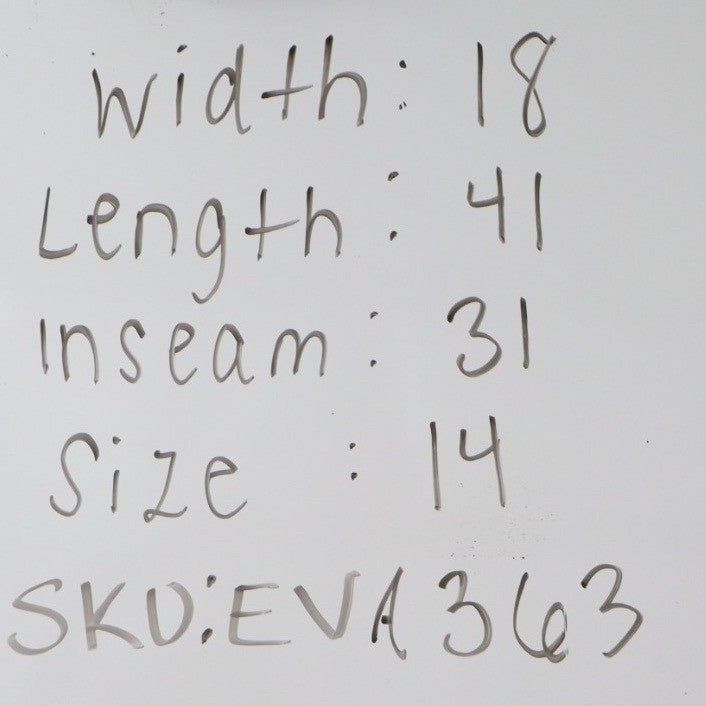 Width: 18
Length: 41
Inseam: 31
Size : 14
SKU:EVA363